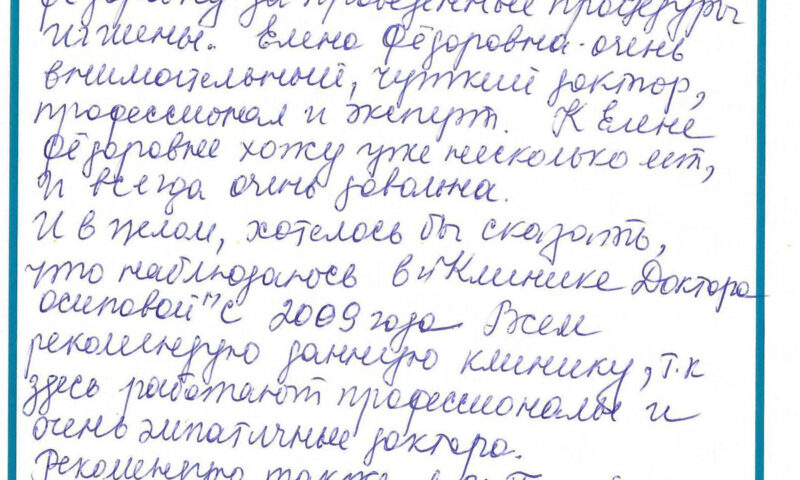 Фёдоровну за проведённые процедуры
гигиены. Елена Фёдоровна - очень
внимательный, чуткий доктор,
профессионал и эксперт. К Елене
Фёдоровне хожу уже несколько лет,
и всегда очень довольна.
И в целом, хотелось бы сказать,
что наблюдаюсь в "Клинике Доктора
Осиповой" с 2009 года. Всем
рекомендую данную клинику, т.к
здесь работают профессионалы и
очень эмпатичные доктора.
Рекомендую также